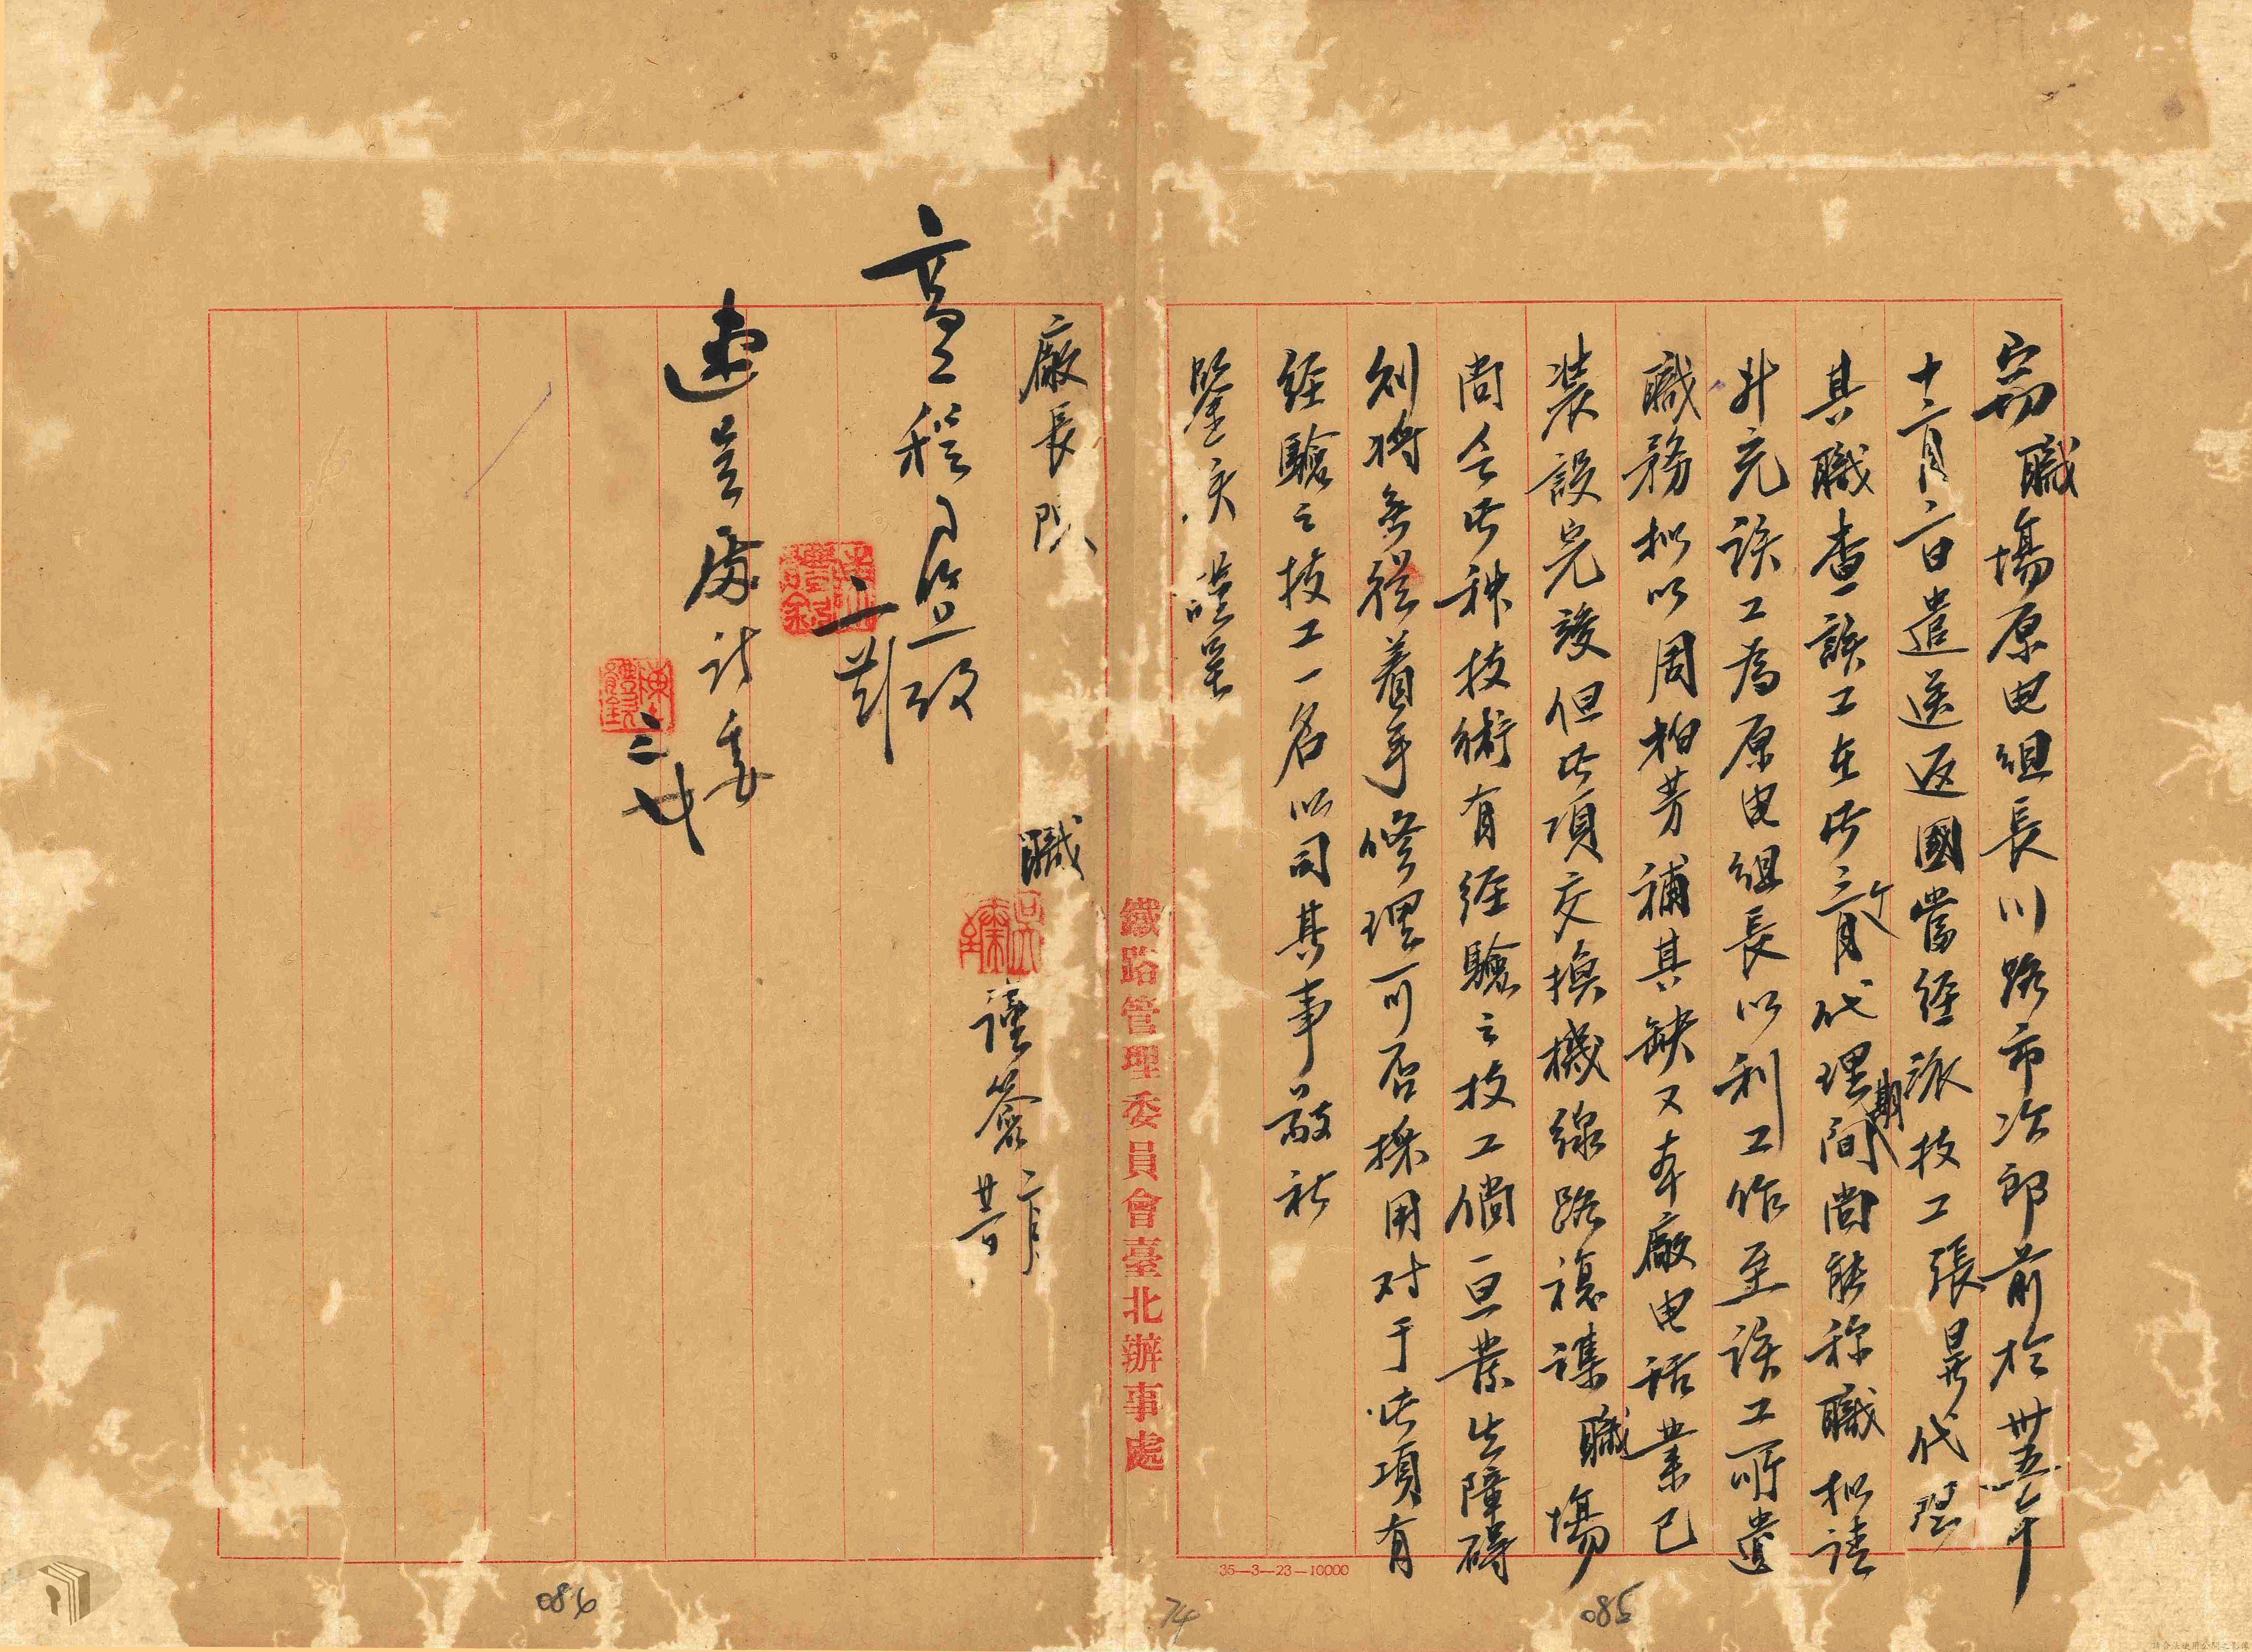 竊職場原电組長川路市次郎前於卅五年
十二月二日遣送返國當經派技工張昇代理
其職查該工在此二個月代理期間尚能称職拟請
升充該工為原电組長以利工作至該工所遺
職務拟以周柏芳補其缺又本廠电話業已
裝設完竣但此項交換機線路複雜職場
尚無此种技術有經驗之技工倘一旦發生障碍
則將無從着手修理可否採用对于此項有
經驗之技工一名以司其事敬祈
鑒核謹呈
廠長陳
職
謹簽二月
廿一日
速呈處討委
三廿
鐵路管理委員會臺北辦事處
35—3—23—10000
086
74
085